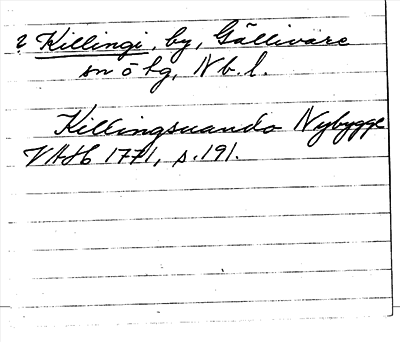 ? Killingi, by, Gällivare
sn o hg, Nb. l.
Killingsuando Nybygge
VAH 1771, s. 191.